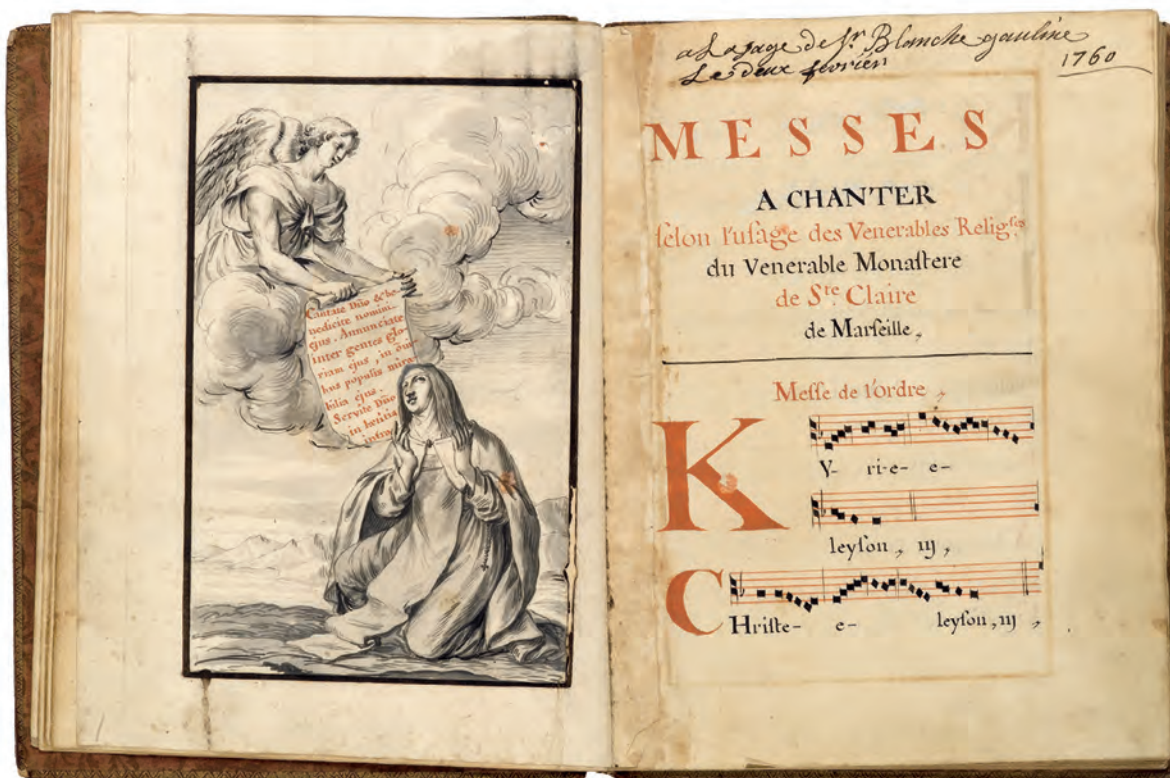 Cantate Dño & be-
nedicite nomini
ejus. Annunciate
inter gentes glo-
riam ejus, in õm-
bus populis mira-
bilia ejus.
Servite Dño
in lætitia
a Lafage de Sr. Blanche gauline
Les deux fevrier 1760
MESSES
A CHANTER
ſelon l'uſage des Venerables Religſes
du Venerable Monaſtere
de Ste. Claire
de Marſeille,
Meſſe de l'ordre,
Ky- ri-e- e-
leyſon, iij,
CHriſte- e- leyſon, iij,